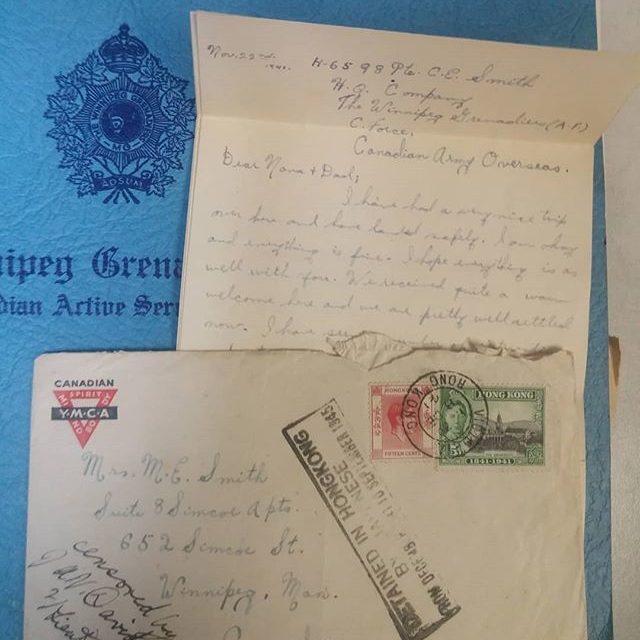 WINNIPEG
nipeg Grena
dian Active Ser
Nov. 22nd. H-6598 Pte. C.E. Smith
1941.
H.Q. Company
The Winnipeg Grenadiers (A.F)
C. Force,
Canadian Army Overseas.
Dear Nana & Dad,
I have had a very nice trip
over here and have landed safely. I am okay
and everything is fine. I hope everything is as
well with you. We received quite a warm
welcome here and we are pretty well settled
now. I have
CANADIAN
SPIRIT
MIND BODY
Y·M·C·A
HONG KONG
FIFTEEN CENTS
VICTORIA
HONG KONG
HONG KONG
1841-1941
Mrs. M.E. Smith
Suite 8 Simcoe Apts.
652 Simcoe St.
Winnipeg, Man.
DETAINED IN HONGKONG
BY JAPANESE
SEPTEMBER 1945
censored by